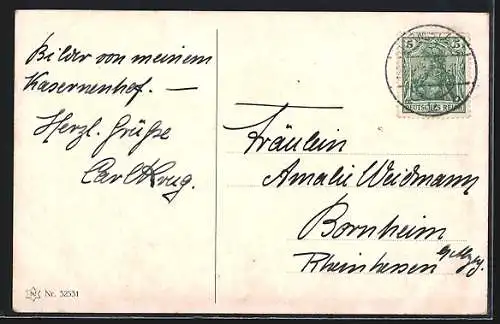 Bilder von meinem
Kasernenhof. —
Herzl. Grüße
Carl Krug.
5 5
DEUTSCHES REICH
Fräulein
Amalie Weidmann
Bornheim
Rheinhessen
Nr. 52531